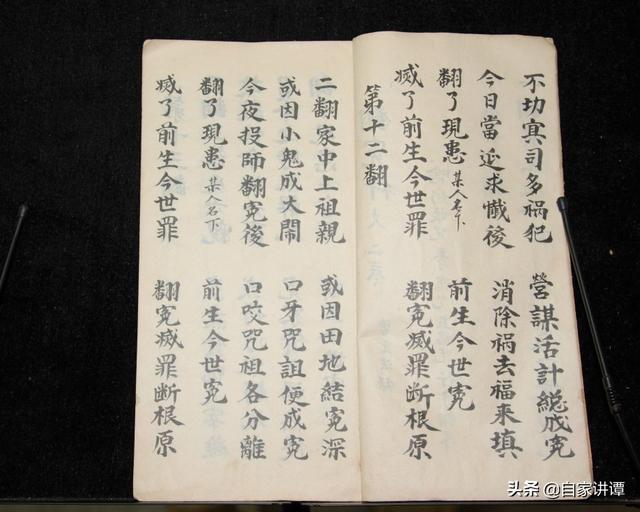 不功寘司多祸犯 营謀活計総成寃
今日當延求懴後 消除祸去福来填
翻了現患某人名下 前生今世寃
滅了前生今世罪 翻寃滅罪断根原
第十二翻
二翻家中上祖親 或因田地結寃深
或因小鬼成大鬧 口牙咒詛便成寃
今夜投師翻寃後 口咬咒祖各分離
翻了現患某人名下 前生今世寃
滅了前生今世罪 翻寃滅罪断根原
头条 @自家讲谭